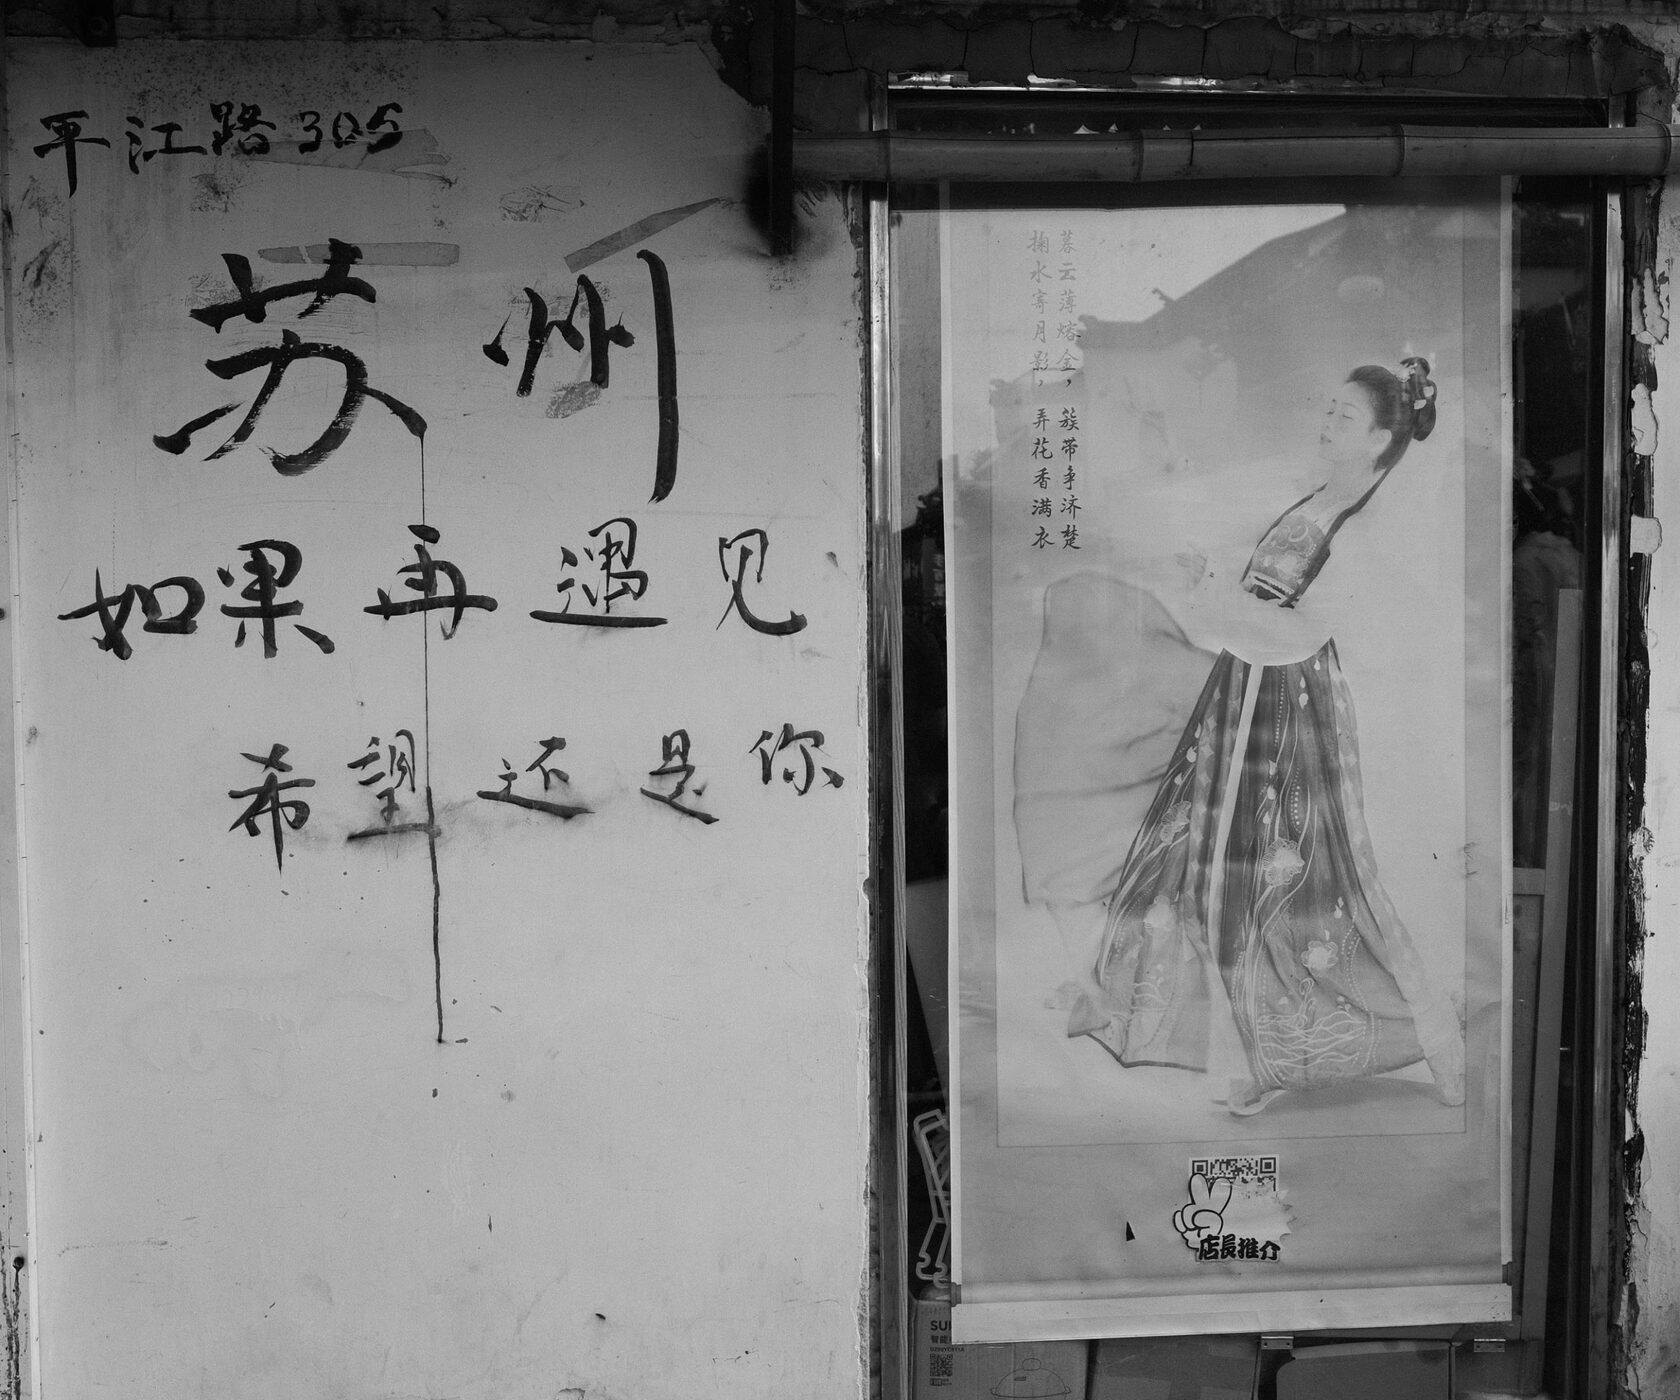 平江路305
苏州
如果再遇见
希望还是你
暮云薄熔金，簇带争济楚
掬水寄月影，弄花香满衣
店長推介